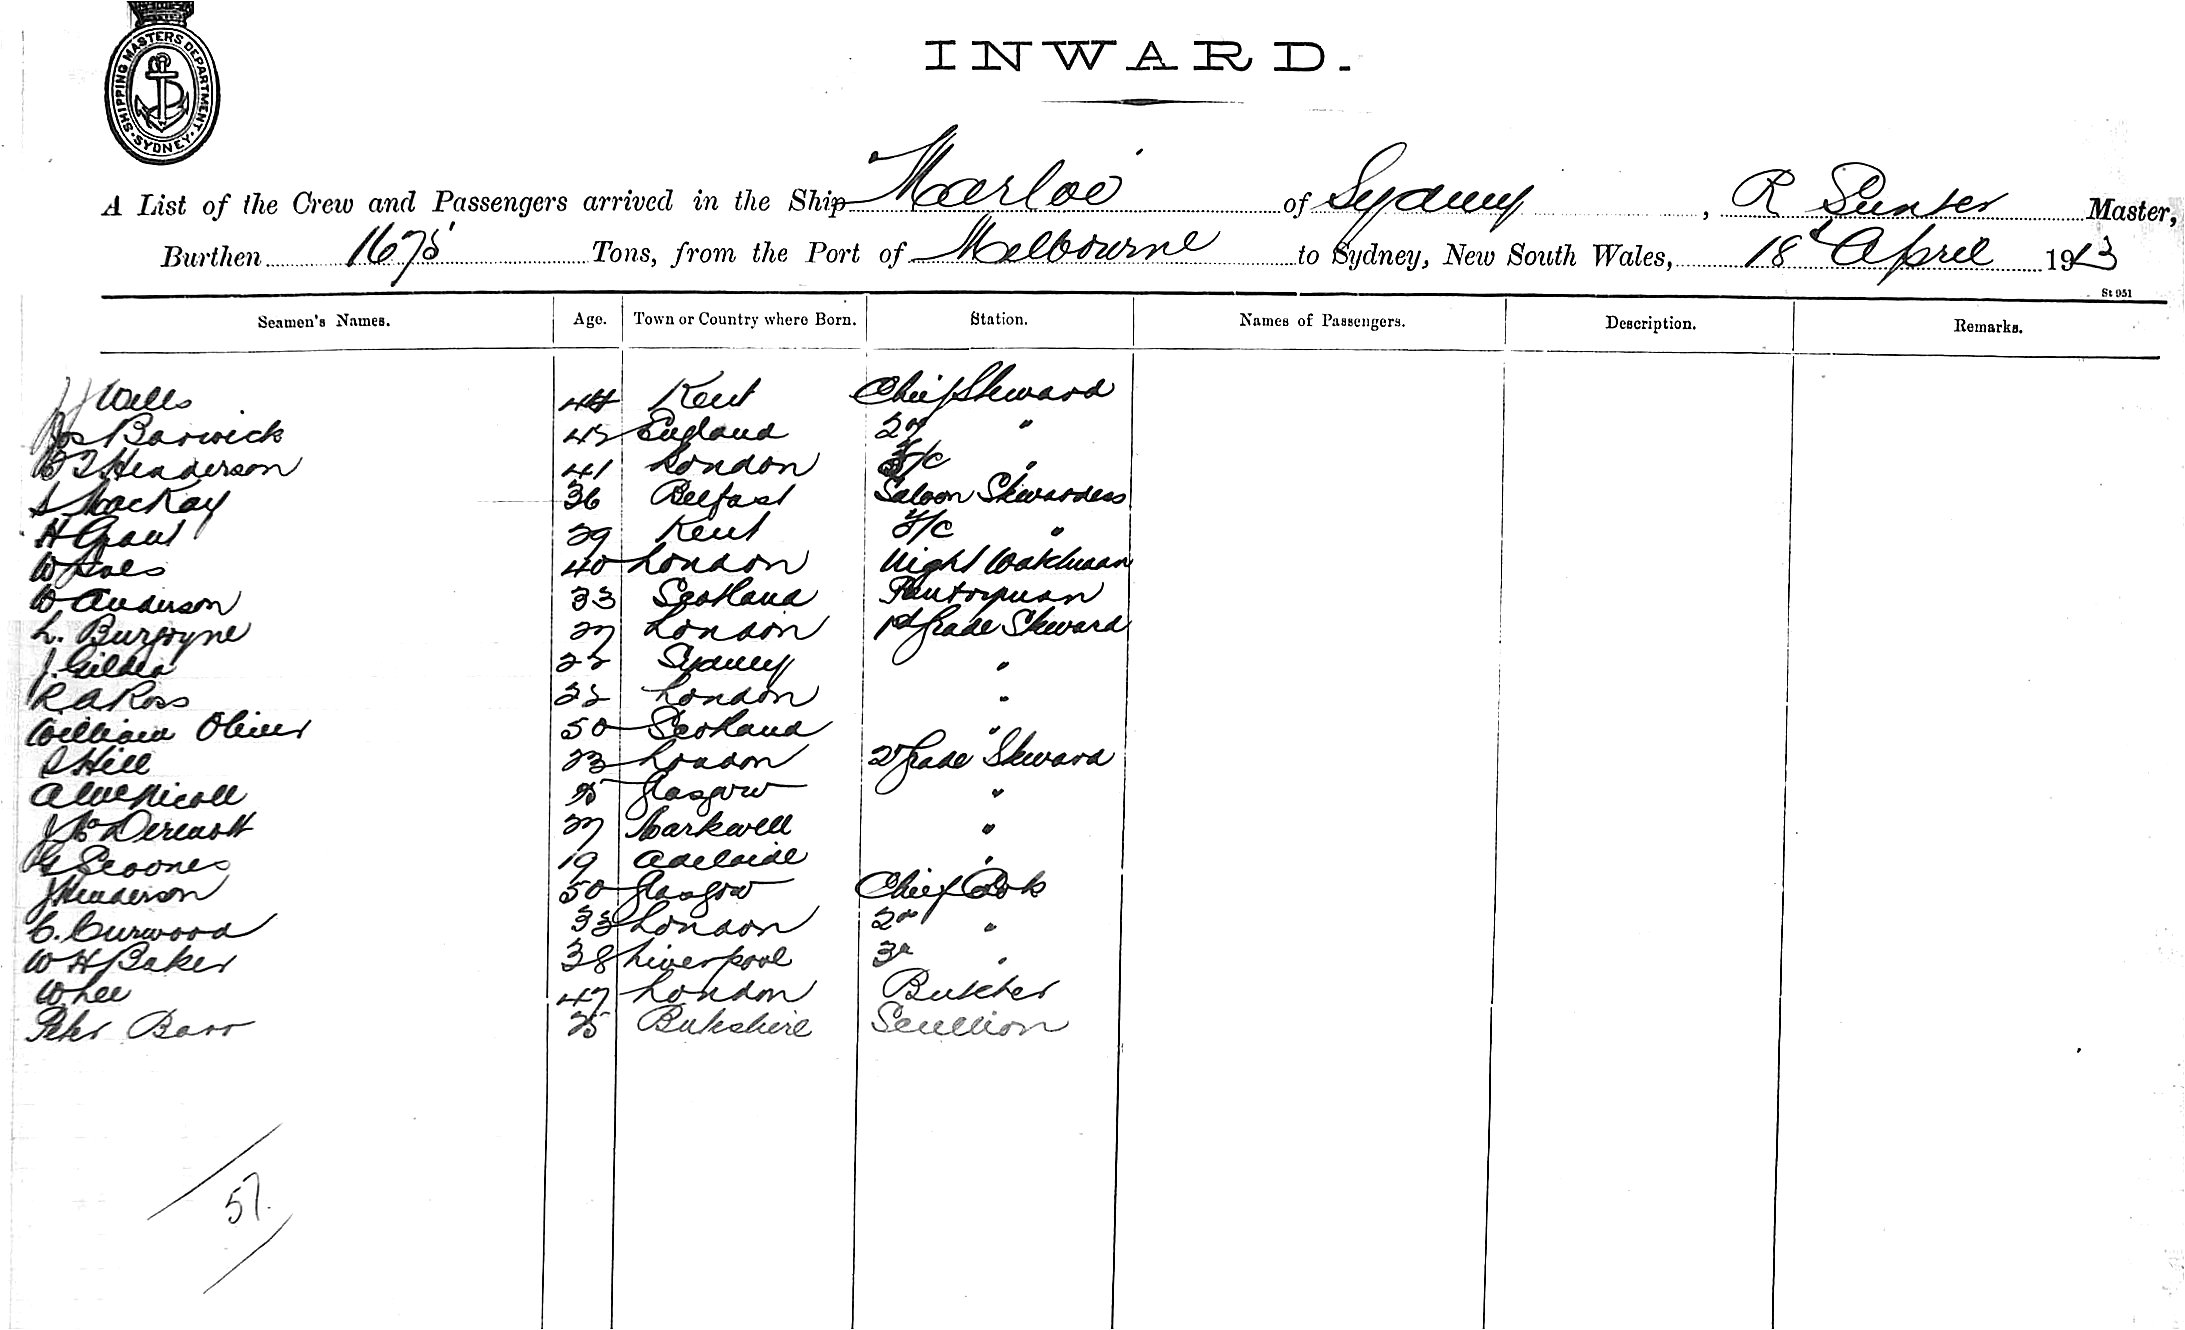 SHIPPING MASTERS DEPARTMENT · SYDNEY ·
INWARD.
A List of the Crew and Passengers arrived in the Ship Marloo of Sydney, R Sunter Master,
Burthen 1675 Tons, from the Port of Melbourne to Sydney, New South Wales, 18 April 1913
St 951
Seamen's Names. Age. Town or Country where Born. Station. Names of Passengers. Description. Remarks.
J Wells 44 Kent Chief Steward
Jos Barwick England 2nd "
Henderson 41 London "
S MacKay 36 Belfast Saloon Stewardess
H Grant 29 Kent "
W 40 London Night Watchman
W Anderson 33 Scotland Pantryman
L. Burgoyne 27 London 1st Grade Steward
J. Gilden 22 Sydney "
R. A Ross London "
William Oliver 50 Scotland "
S Hill 23 London 2nd Grade Steward
A McNicoll 25 Glasgow "
J McDermott 27 "
G Scoones 19 Adelaide "
J Henderson 50 Glasgow Chief Cook
C. Curwood 33 London 2nd "
W H Baker 38 Liverpool 3rd "
W Lee 47 London Butcher
Peter Barr 25 Buteshire Scullion
57.